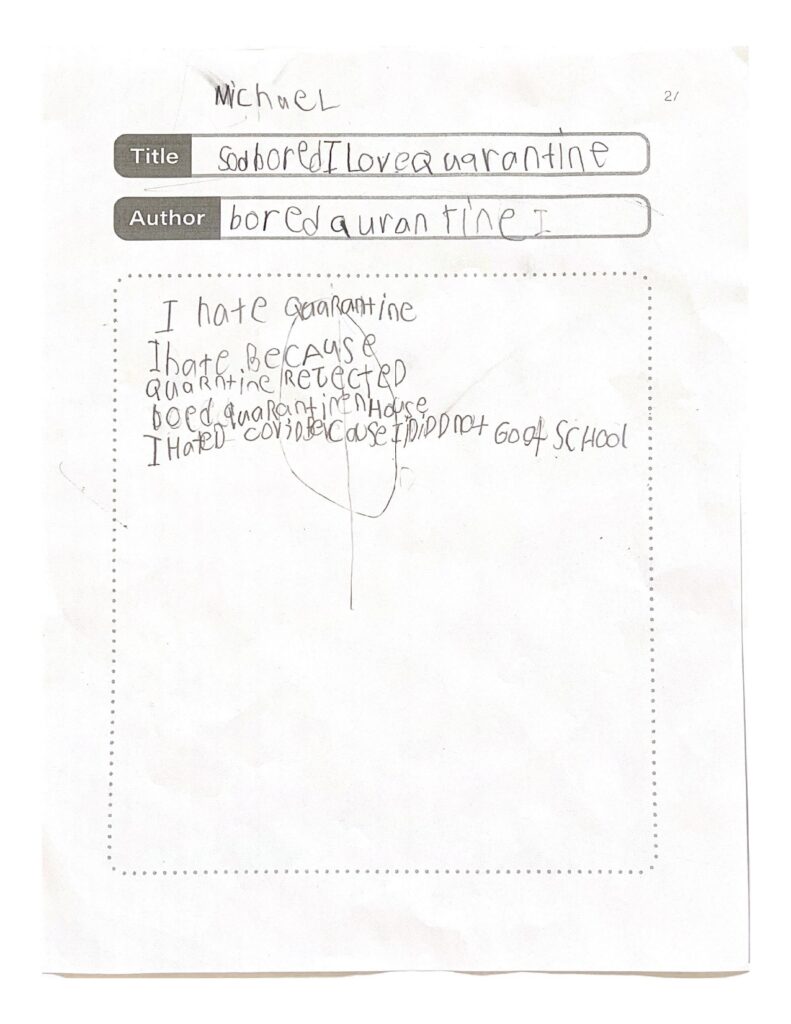 MichaeL
2/
Title sadboredILovequarantine
Author boredqurantine I
I hate quaRantine
Ihate BecAuse
quaRntine ReJected
boed quaRantinenHouse
IHateD covidBecause IDiDDnot Go of SCHool